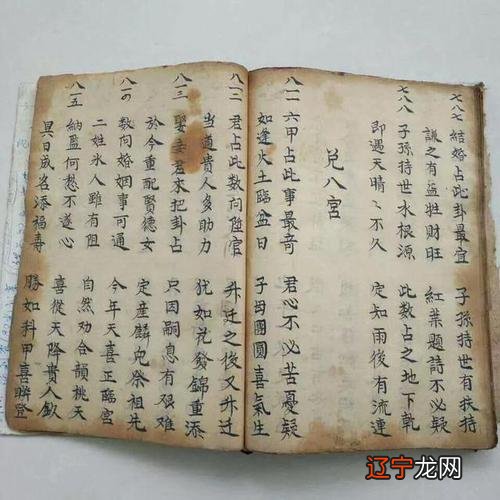 七八七 結婚占此卦最宜 子孫持世有扶持
謙之有益牲財旺 紅葉題詩不必疑
七八八 子孫持世水根源 此數占之地下乾
即遇天晴〻不久 定知雨後有流連
兑八宮
八一一 六甲占此事最奇 君心不必苦憂疑
如逢火土臨盆日 子母團圓喜氣生
八一二 君占此数向陞官 升迁之後又升迁
當道貴人多助力 犹如花發錦重添
八一三 娶妻君来把卦占 只因嗣息有艰难
於今重配賢德女 定産麟兒祭祖先
八一四 数向婚姻事可通 今年天喜正臨宮
二姓氷人雖有阻 自然劝合韻桃天
八一五 納監何愁不遂心 喜從天降貴人欽
異日成名添福寿 勝如科甲喜聯登
辽宁龙网